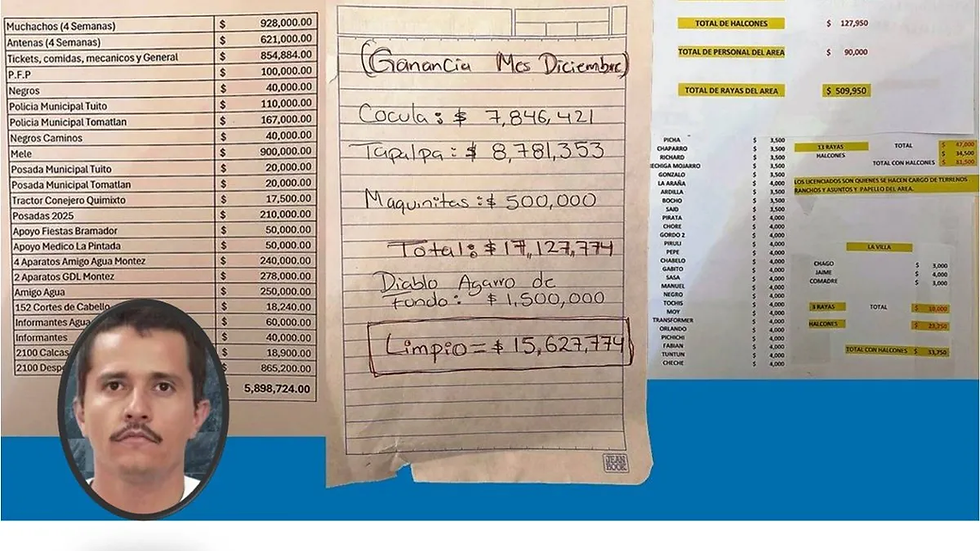 Muchachos (4 Semanas) $ 928,000.00
Antenas (4 Semanas) $ 621,000.00
Tickets, comidas, mecanicos y General $ 854,884.00
P.F.P $ 100,000.00
Negros $ 40,000.00
Policia Municipal Tuito $ 110,000.00
Policia Municipal Tomatlan $ 167,000.00
Negros Caminos $ 40,000.00
Mele $ 900,000.00
Posada Municipal Tuito $ 20,000.00
Posada Municipal Tomatlan $ 20,000.00
Tractor Conejero Quimixto $ 17,500.00
Posadas 2025 $ 210,000.00
Apoyo Fiestas Bramador $ 50,000.00
Apoyo Medico La Pintada $ 50,000.00
4 Aparatos Amigo Agua Montez $ 240,000.00
2 Aparatos GDL Montez $ 278,000.00
Amigo Agua $ 250,000.00
152 Cortes de Cabello $ 18,240.00
Informantes Agua $ 60,000.00
Informantes $ 40,000.00
2100 Calcas $ 18,900.00
2100 Desp $ 865,200.00
$ 5,898,724.00
(Ganancia Mes Diciembre)
Cocula: $ 7,846,421
Tapalpa: $ 8,781,353
Maquinitas: $ 500,000
Total: $ 17,127,774
Diablo Agarro de
fondo: $ 1,500,000
Limpio = $ 15,627,774
JEAN
BOOK
TOTAL DE HALCONES $ 127,950
TOTAL DE PERSONAL DEL AREA $ 90,000
TOTAL DE RAYAS DEL AREA $ 509,950
PICHA $ 3,500
CHAPARRO $ 3,500
RICHARD $ 3,500
ECHIGA MOJARRO $ 3,500
GONZALO $ 3,500
LA ARAÑA $ 4,000
ARDILLA $ 3,500
BOCHO $ 3,500
SAID $ 3,500
PIRATA $ 4,000
CHORE $ 4,000
GORDO 2 $ 4,000
PIRULI $ 4,000
PEPE $ 4,000
CHABELO $ 4,000
GABITO $ 4,000
SASA $ 4,000
MANUEL $ 4,000
NEGRO $ 4,000
TOCHIS $ 4,000
MOY $ 4,000
TRANSFORMER $ 4,000
ORLANDO $ 4,000
PICHICHI $ 4,000
FABIAN $ 4,000
TUNTUN $ 4,000
CHECHE $ 4,000
13 RAYAS TOTAL $ 47,000
HALCONES $ 34,500
TOTAL CON HALCONES $ 81,500
LOS LICENCIADOS SON QUIENES SE HACEN CARGO DE TERRENOS
RANCHOS Y ASUNTOS Y PAPELLO DEL AREA.
LA VILLA
CHAGO $ 3,000
JAIME $ 4,000
COMADRE $ 3,000
3 RAYAS TOTAL $ 10,000
HALCONES $ 23,750
TOTAL CON HALCONES $ 33,750